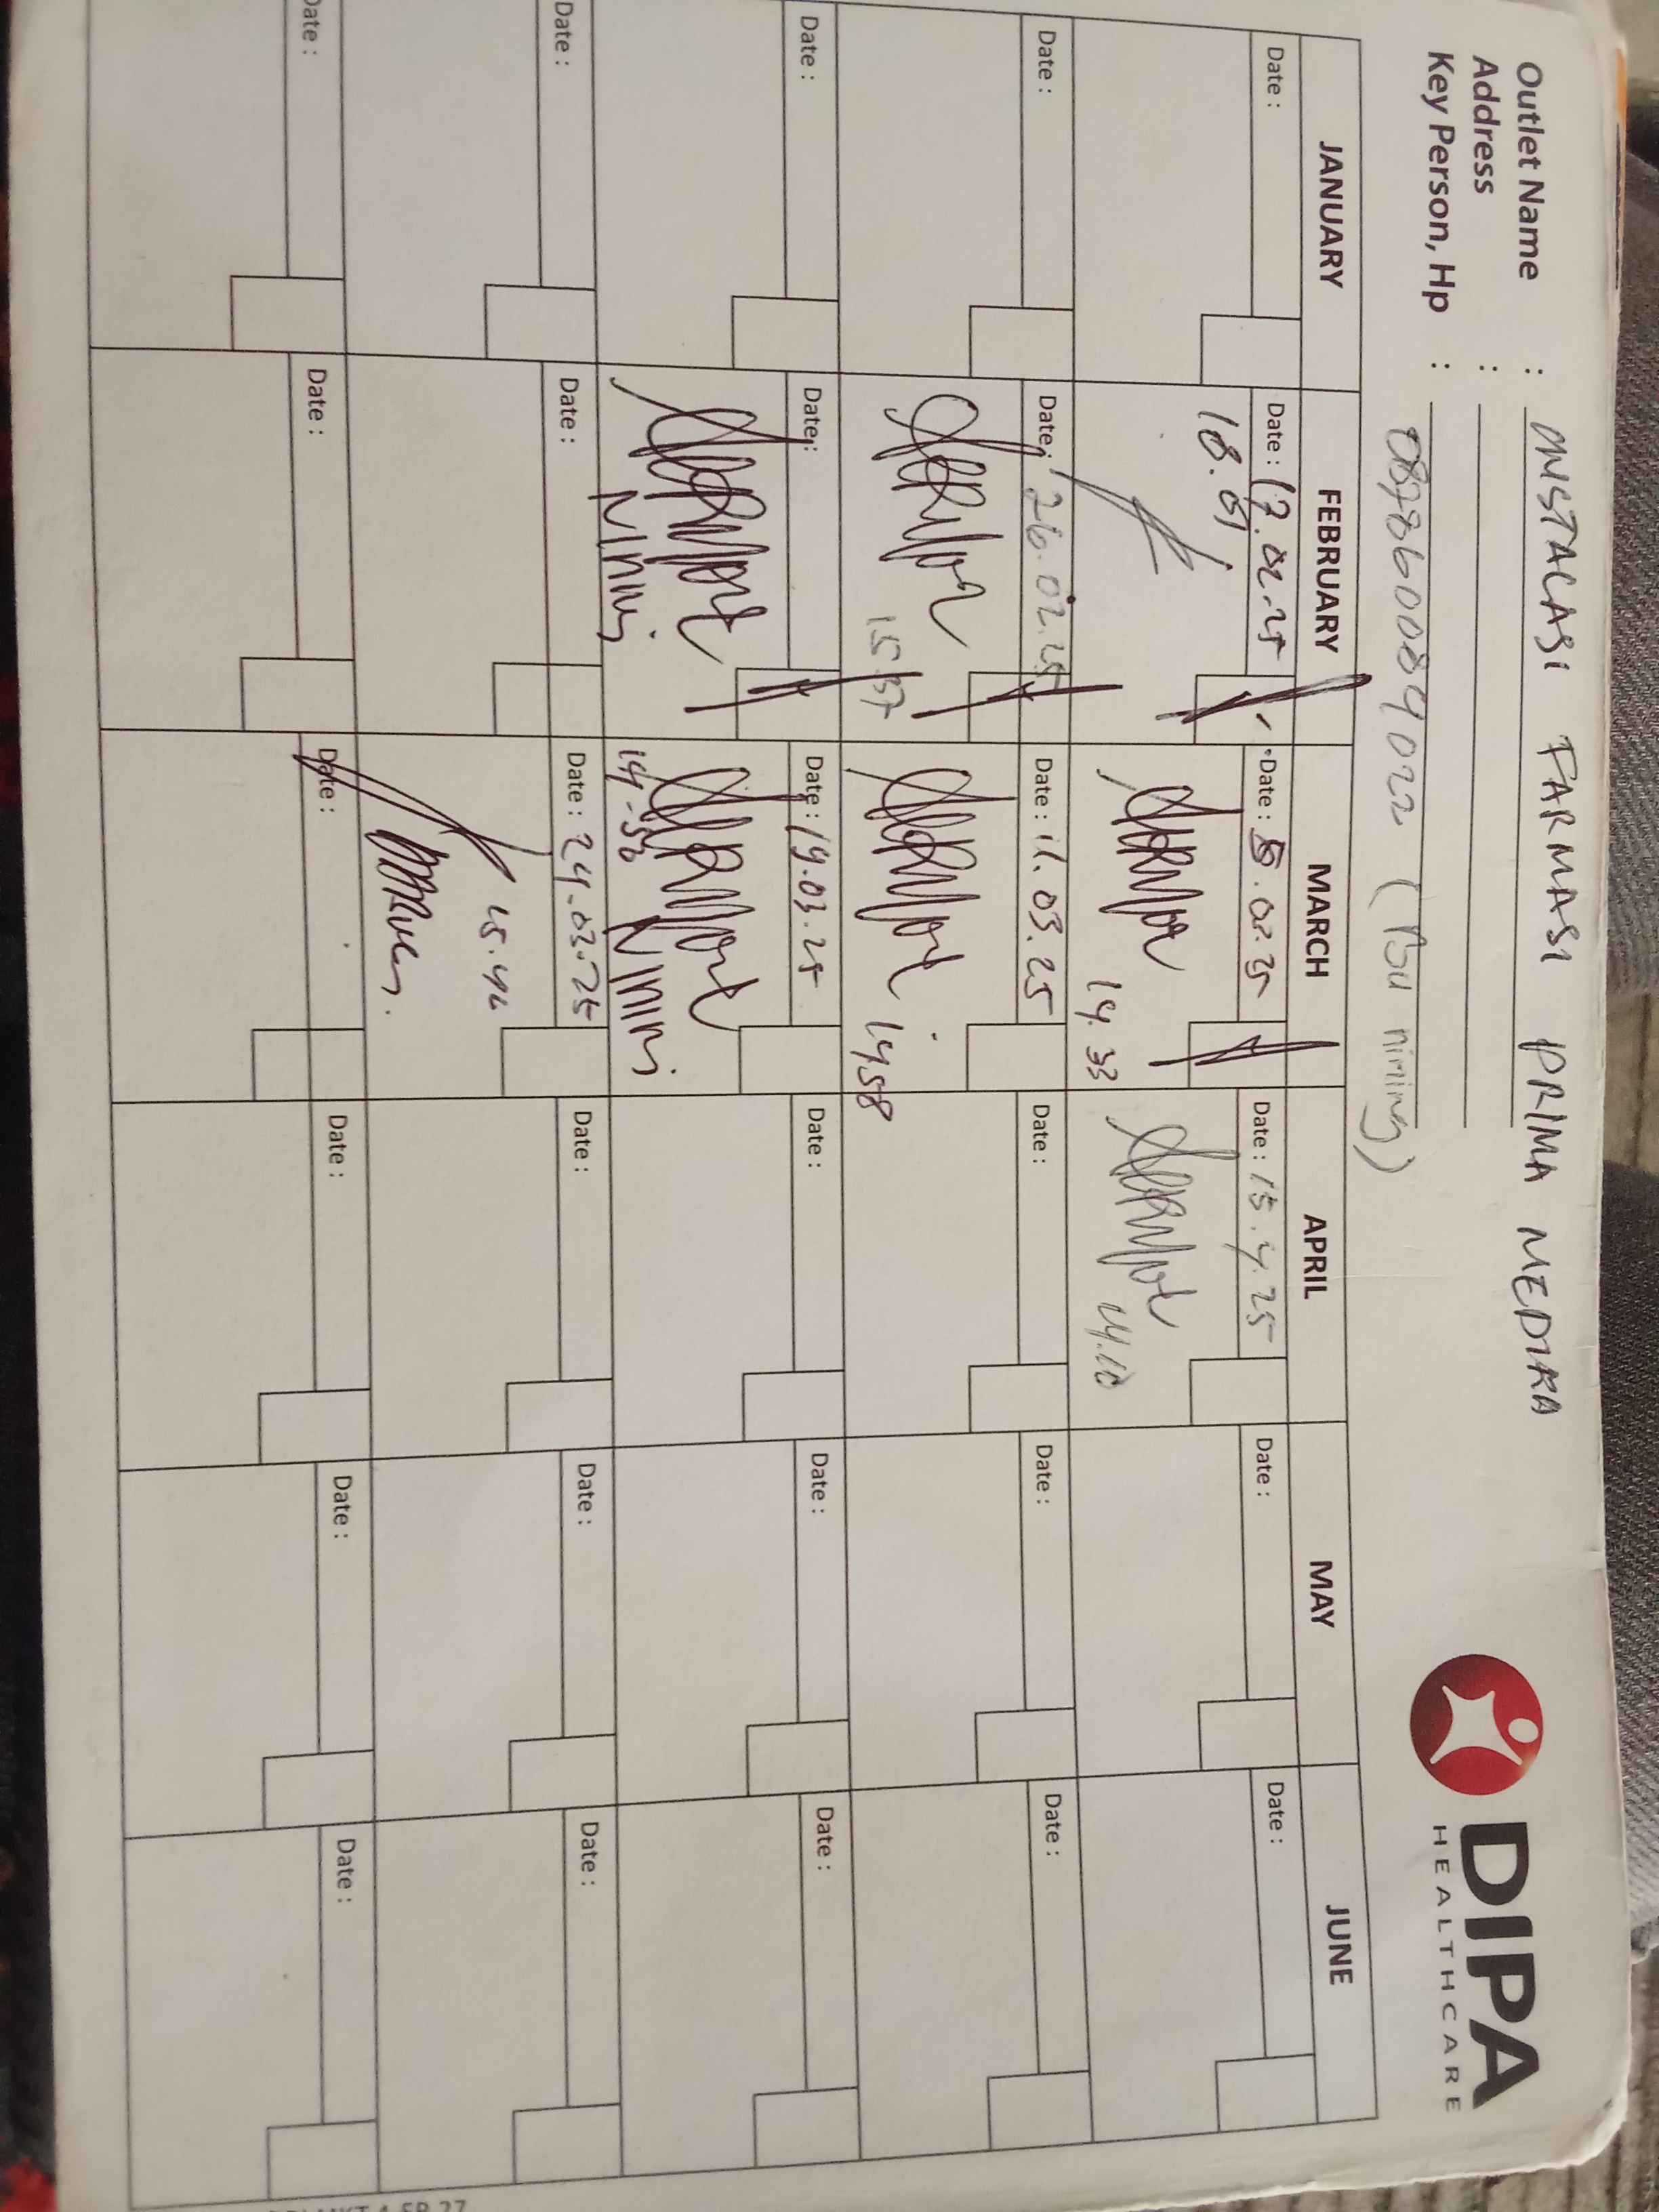 DIPA
HEALTHCARE
Outlet Name : INSTALASI FARMASI PRIMA MEDIKA
Address :
Key Person, Hp : 087860089022 (Bu niming)
JANUARY FEBRUARY MARCH APRIL MAY JUNE
Date : Date : 17.02.25 Date : 5.03.25 Date : 15.4.25 Date : Date :
14.33 14.10
Date : Date : 26.02.25 Date : 11.03.25 Date : Date : Date :
15 37 1458
Date : Date : Date : 19.03.25 Date : Date : Date :
Date : Date : Date : 24.03.25 Date : Date : Date :
15.46
Date : Date : Date : Date : Date : Date :